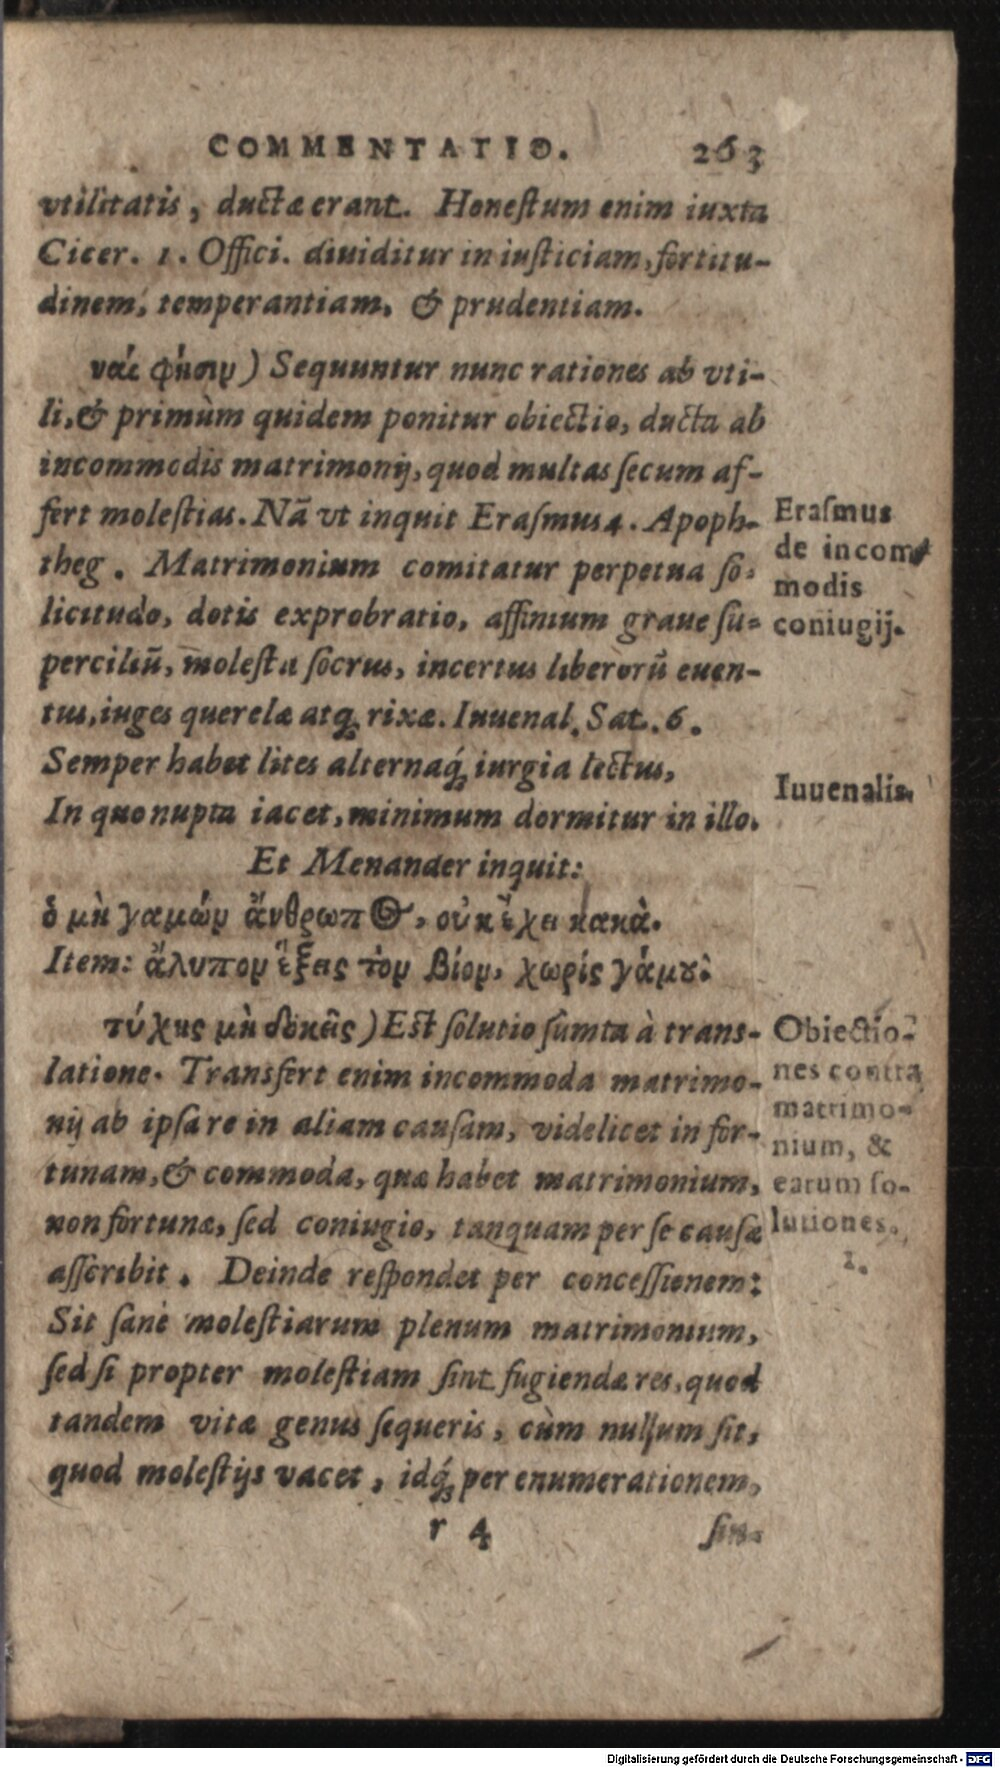 COMMENTATIO. 263
vtilitatis, ductæ erant. Honestum enim iuxta
Cicer. 1. Offici. diuiditur in iusticiam, fortitu-
dinem, temperantiam, & prudentiam.
ναὶ φήσιν) Sequuntur nunc rationes ab vti-
li, & primùm quidem ponitur obiectio, ducta ab
incommodis matrimonij, quod multas secum af-
fert molestias. Nã vt inquit Erasmus 4. Apoph-
theg. Matrimonium comitatur perpetua so-
licitudo, dotis exprobratio, affinium graue su-
perciliũ, molesta socrus, incertus liberorũ euen-
tus, iuges querelæ atq́; rixæ. Iuuenal. Sat. 6.
Semper habet lites alternaq́; iurgia lectus,
In quo nupta iacet, minimum dormitur in illo.
Et Menander inquit:
ὁ μὴ γαμῶν ἄνθρωπος, οὐκ ἔχει κακὰ.
Item: ἄλυπον ἕξεις τὸν βίον, χωρίς γάμου.
τύχης μὴ δοκεῖς) Est solutio sumta à trans-
latione. Transfert enim incommoda matrimo-
nij ab ipsa re in aliam causam, videlicet in for-
tunam, & commoda, quæ habet matrimonium,
non fortunæ, sed coniugio, tanquam per se causæ
asscribit. Deinde respondet per concessionem:
Sit sanè molestiarum plenum matrimonium,
sed si propter molestiam sint fugiendæ res, quod
tandem vitæ genus sequeris, cùm nullum sit,
quod molestijs vacet, idq́; per enumerationem,
r 4 sin-
Erasmus
de incom-
modis
coniugij.
Iuuenalis.
Obiectio-
nes contra
matrimo-
nium, &
earum so-
lutiones.
1.
Digitalisierung gefördert durch die Deutsche Forschungsgemeinschaft - DFG